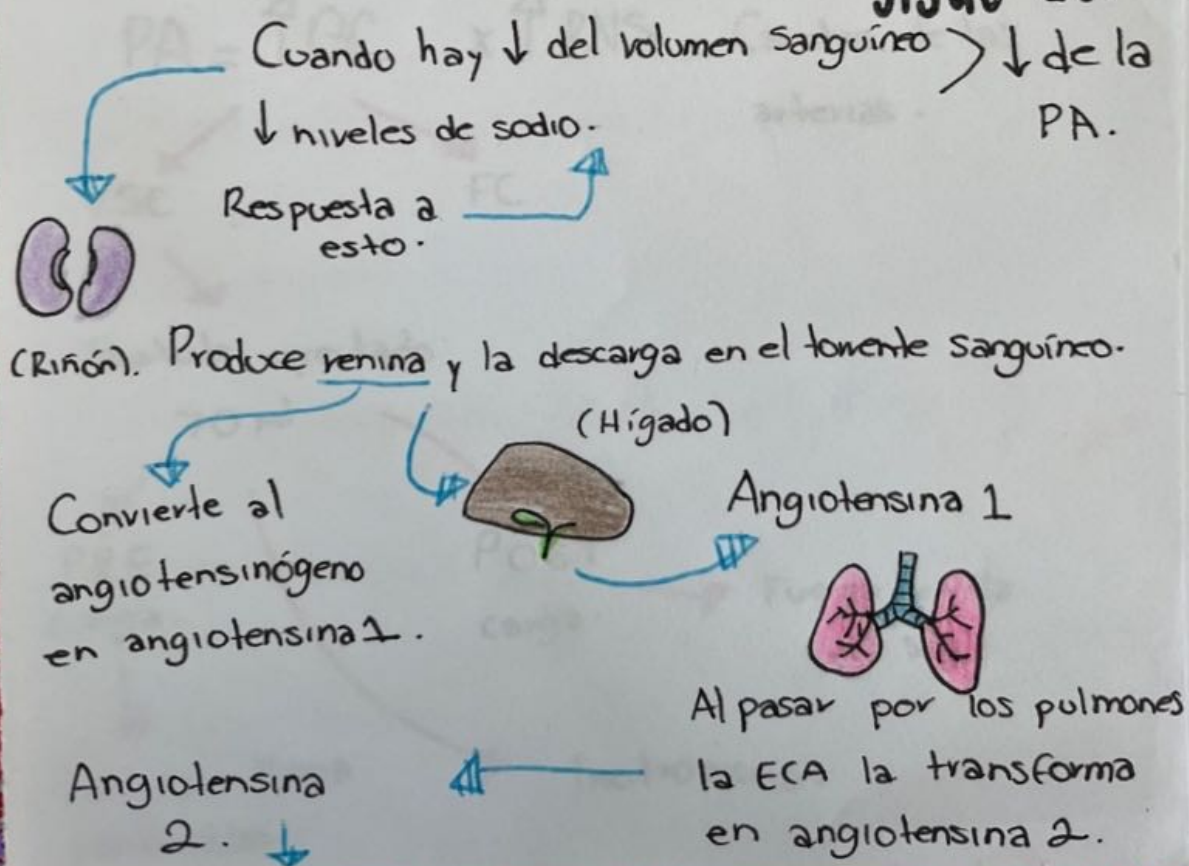 Cuando hay ↓ del volumen sanguíneo > ↓ de la
PA.
↓ niveles de sodio.
Respuesta a
esto.
(Riñón). Produce renina y la descarga en el torrente sanguíneo.
(Hígado)
Convierte al
angiotensinógeno
en angiotensina 1.
Angiotensina 1
Al pasar por los pulmones
la ECA la transforma
en angiotensina 2.
Angiotensina
2. ↓